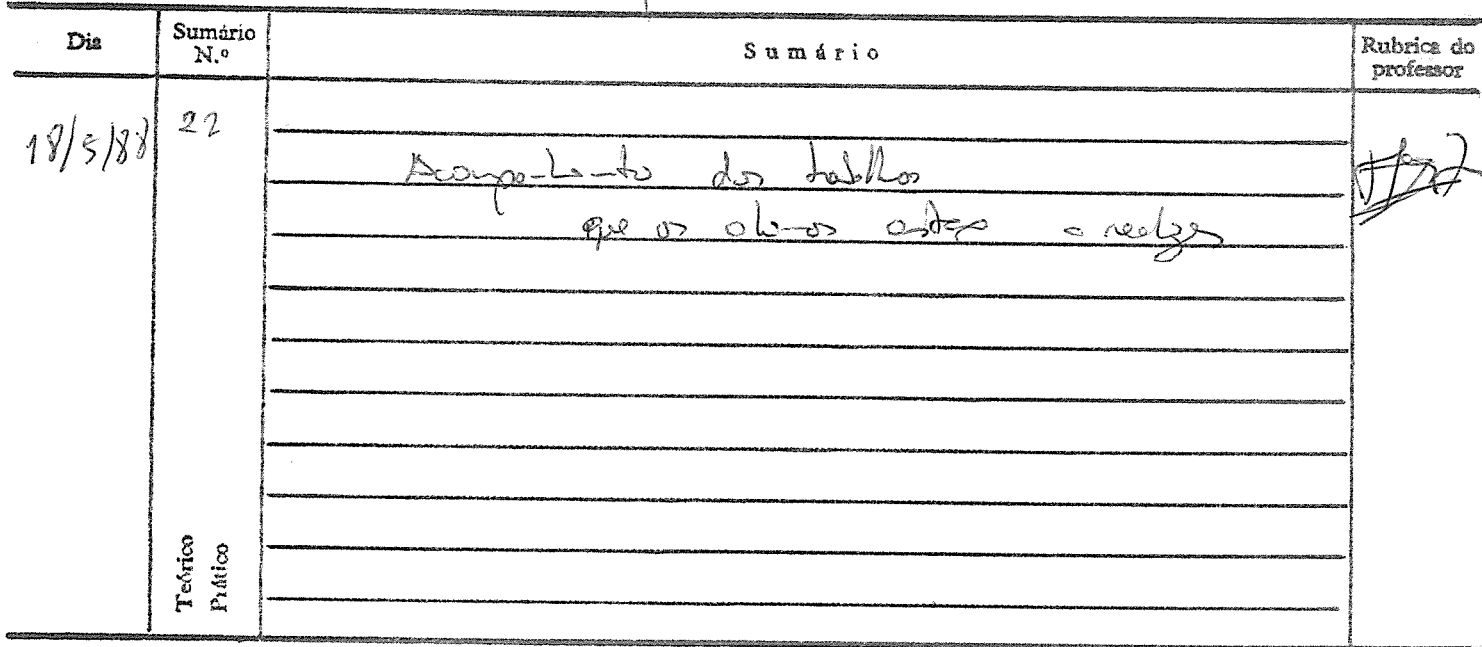 Dia
Sumário
N.º
Sumário
Rubrica do
professor
18/5/88
22
Acompanhamento dos trabalhos
que os alunos estão a realizar
Teórico
Prático